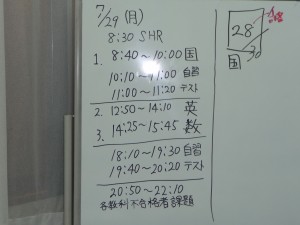 7/29 (月)
8:30 SHR
1. 8:40～10:00 国
10:10～11:00 自習
11:00～11:20 テスト
2. 12:50～14:10 英
3. 14:25～15:45 数
18:10～19:30 自習
19:40～20:20 テスト
20:50～22:10
各教科不合格者課題
28
30
国